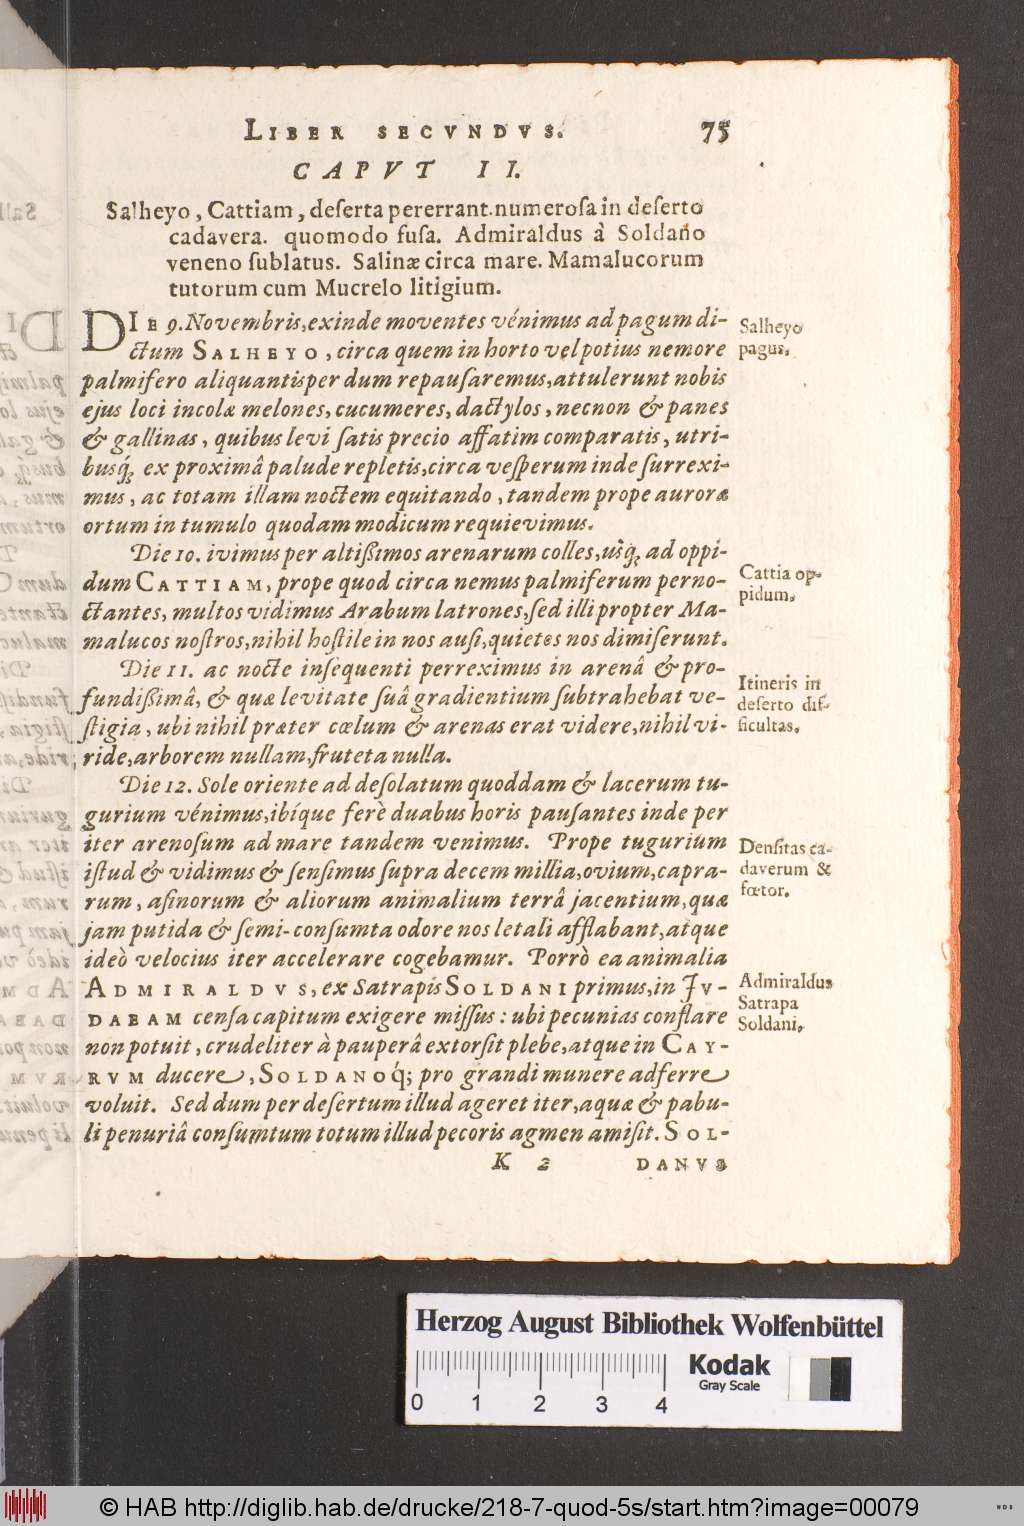 LIBER SECVNDVS. 75
CAPVT II.
Salheyo, Cattiam, deserta pererrant. numerosa in deserto
cadavera. quomodo fusa. Admiraldus à Soldano
veneno sublatus. Salinæ circa mare. Mamalucorum
tutorum cum Mucrelo litigium.
DIE 9. Novembris, exinde moventes vénimus ad pagum di-
ctum SALHEYO, circa quem in horto vel potius nemore
palmifero aliquantisper dum repausaremus, attulerunt nobis
ejus loci incolæ melones, cucumeres, dactylos, necnon & panes
& gallinas, quibus levi satis precio affatim comparatis, utri-
busq́; ex proximâ palude repletis, circa vesperum inde surrexi-
mus, ac totam illam noctem equitando, tandem prope auroræ
ortum in tumulo quodam modicum requievimus.
Die 10. ivimus per altißimos arenarum colles, usq́; ad oppi-
dum CATTIAM, prope quod circa nemus palmiferum perno-
ctantes, multos vidimus Arabum latrones, sed illi propter Ma-
malucos nostros, nihil hostile in nos ausi, quietos nos dimiserunt.
Die 11. ac nocte insequenti perreximus in arenâ & pro-
fundißimâ, & quæ levitate suâ gradientium subtrahebat ve-
stigia, ubi nihil præter cœlum & arenas erat videre, nihil vi-
ride, arborem nullam, fruteta nulla.
Die 12. Sole oriente ad desolatum quoddam & lacerum tu-
gurium vénimus, ibíque ferè duabus horis pausantes inde per
iter arenosum ad mare tandem venimus. Prope tugurium
istud & vidimus & sensimus supra decem millia, ovium, capra-
rum, asinorum & aliorum animalium terrâ jacentium, quæ
jam putida & semi-consumta odore nos letali afflabant, atque
ideò velocius iter accelerare cogebamur. Porrò ea animalia
ADMIRALDVS, ex Satrapis SOLDANI primus, in JV-
DAEAM censa capitum exigere missus: ubi pecunias conflare
non potuit, crudeliter à pauperâ extorsit plebe, atque in CAY-
RVM ducere, SOLDANOq́; pro grandi munere adferre
voluit. Sed dum per desertum illud ageret iter, aquæ & pabu-
li penuriâ consumtum totum illud pecoris agmen amisit. SOL-
K 2 DANVS
Salheyo
pagus.
Cattia op-
pidum.
Itineris in
deserto dif-
ficultas.
Densitas ca-
daverum &
fœtor.
Admiraldus
Satrapa
Soldani.
Herzog August Bibliothek Wolfenbüttel
Kodak
Gray Scale
0 1 2 3 4
© HAB http://diglib.hab.de/drucke/218-7-quod-5s/start.htm?image=00079